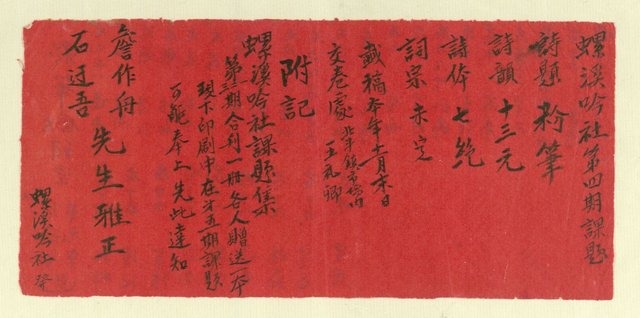 螺溪吟社第四期課題
詩題 粉筆
詩韻 十三元
詩体 七絕
詞宗 未定
截稿 本年十月末日
交卷處 北斗鎮市場內
王礼卿
附記
螺溪吟社課題集
第三期合刊一冊各人贈送一本
現下印刷中在第五期課題
可能奉上先此達知
詹作舟
石迂吾
先生雅正
螺溪吟社